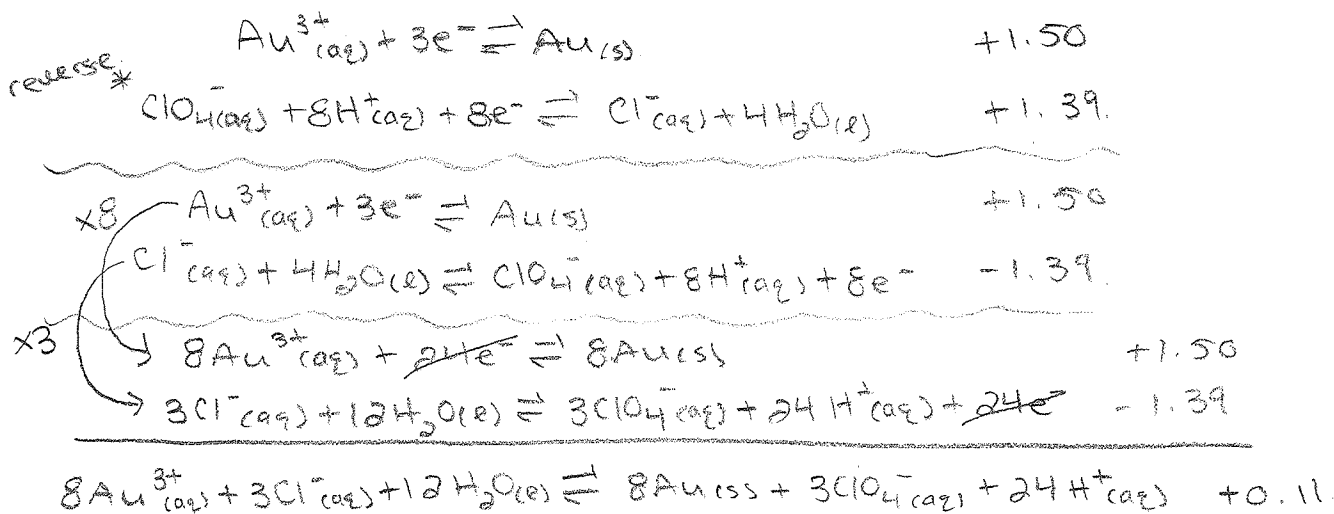 Au³⁺(aq) + 3e⁻ ⇌ Au(s) +1.50
reverse *
ClO₄⁻(aq) + 8H⁺(aq) + 8e⁻ ⇌ Cl⁻(aq) + 4H₂O(l) +1.39.
x8 Au³⁺(aq) + 3e⁻ ⇌ Au(s) +1.50
Cl⁻(aq) + 4H₂O(l) ⇌ ClO₄⁻(aq) + 8H⁺(aq) + 8e⁻ -1.39.
x3
8Au³⁺(aq) + 24e⁻ ⇌ 8Au(s) +1.50
3Cl⁻(aq) + 12H₂O(l) ⇌ 3ClO₄⁻(aq) + 24H⁺(aq) + 24e⁻ -1.39
8Au³⁺(aq) + 3Cl⁻(aq) + 12H₂O(l) ⇌ 8Au(s) + 3ClO₄⁻(aq) + 24H⁺(aq) +0.11.